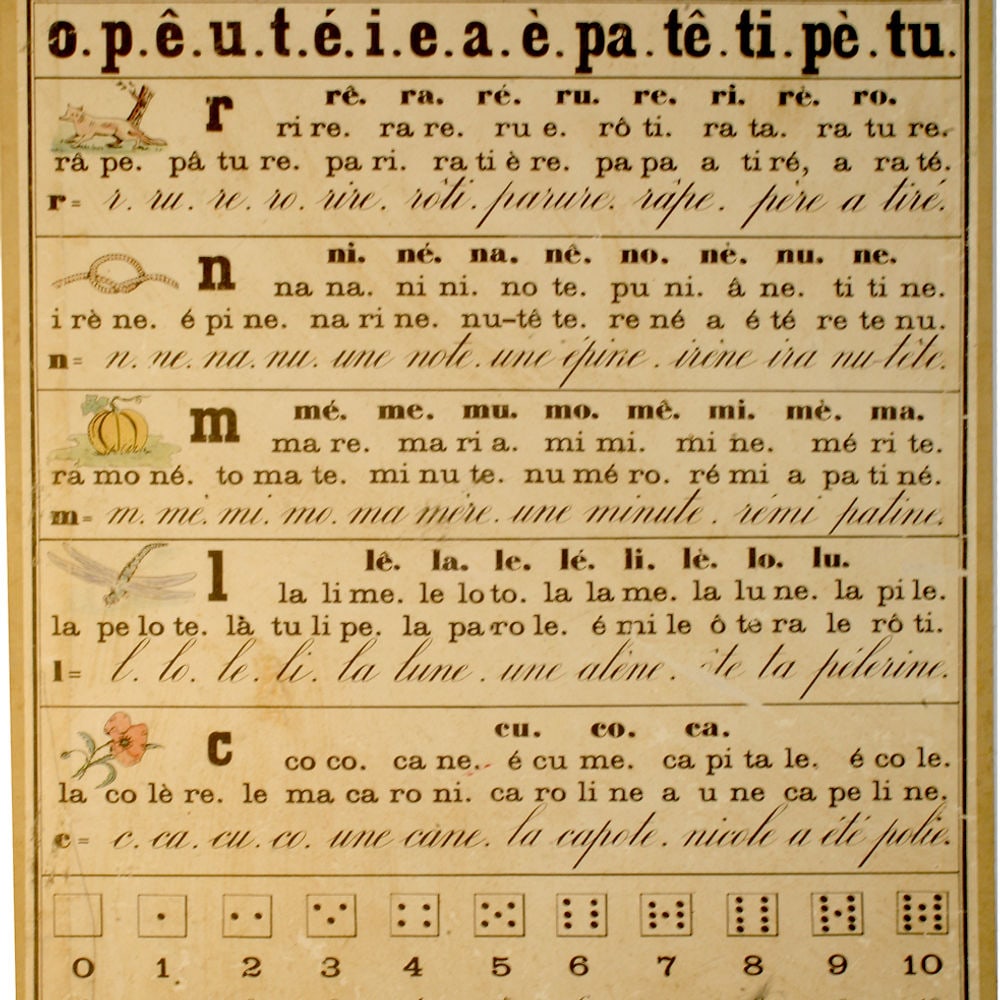 o.p.ê.u.t.é.i.e.a.è.pa.tê.ti.pè.tu.
r rê. ra. ré. ru. re. ri. rè. ro.
ri re. ra re. ru e. rô ti. ra ta. ra tu re.
râ pe. pâ tu re. pa ri. ra ti è re. pa pa a ti ré, a ra té.
r= r. ru. re. ro. rire. rôti. parure. râpe. père a tiré.
n ni. né. na. nê. no. nè. nu. ne.
na na. ni ni. no te. pu ni. â ne. ti ti ne.
i rè ne. é pi ne. na ri ne. nu-tê te. re né a é té re te nu.
n= n. ne. na. nu. une note. une épine. irène ira nu-tête.
m mé. me. mu. mo. mê. mi. mè. ma.
ma re. ma ri a. mi mi. mi ne. mé ri te.
ra mo né. to ma te. mi nu te. nu mé ro. ré mi a pa ti né.
m= m. mé. mi. mo. ma mère. une minute. rémi patine.
l lê. la. le. lé. li. lè. lo. lu.
la li me. le lo to. la la me. la lu ne. la pi le.
la pe lo te. là tu li pe. la pa ro le. é mi le ô te ra le rô ti.
l= l. lo. le. li. la lune. une alène. ta pélerine.
c cu. co. ca.
co co. ca ne. é cu me. ca pi ta le. é co le.
la co lè re. le ma ca ro ni. ca ro li ne a u ne ca pe li ne.
c= c. ca. cu. co. une cane. la capote. nicole a été polie.
0 1 2 3 4 5 6 7 8 9 10